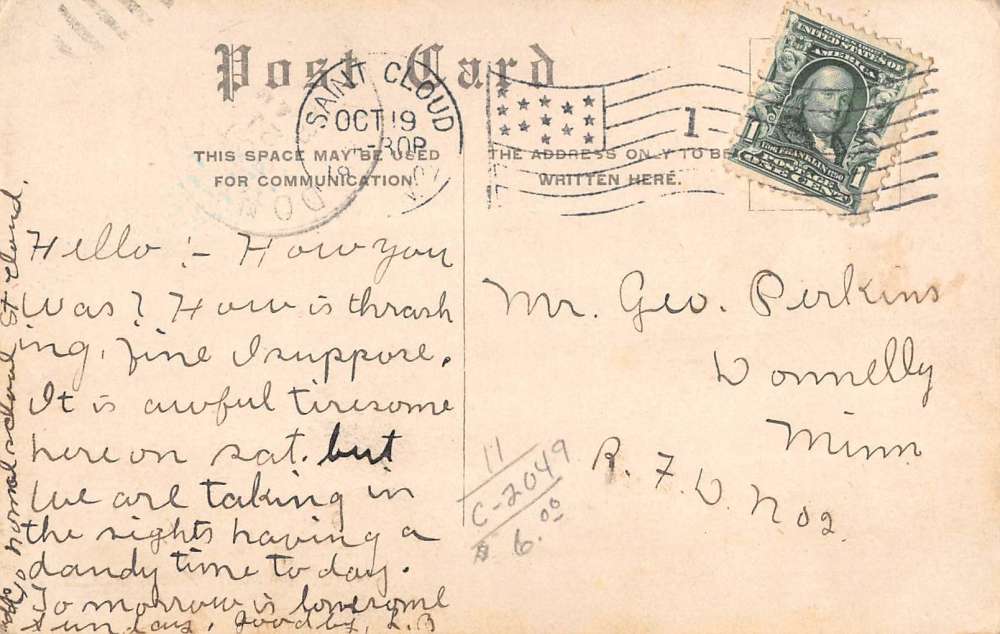 Post Card
SAINT CLOUD
OCT 19
-30P
THIS SPACE MAY BE USED
FOR COMMUNICATION.
THE ADDRESS ONLY TO BE
WRITTEN HERE.
1
UNITED STATES OF
AMERICA
1706 FRANKLIN 1790
POSTAGE
1 ONE CENT 1
Hello!- How you
was? How is thrash
ing, fine I suppose.
It is awful tiresome
here on sat. but
we are taking in
the sights having a
dandy time to day.
To morrow is lonesome
Sunday, Goodby, L.B
normal school St Cloud.
Mr. Geo. Perkins
Donnelly
Minn
R. F. D. No 2.
11
C-2049
$ 6.00